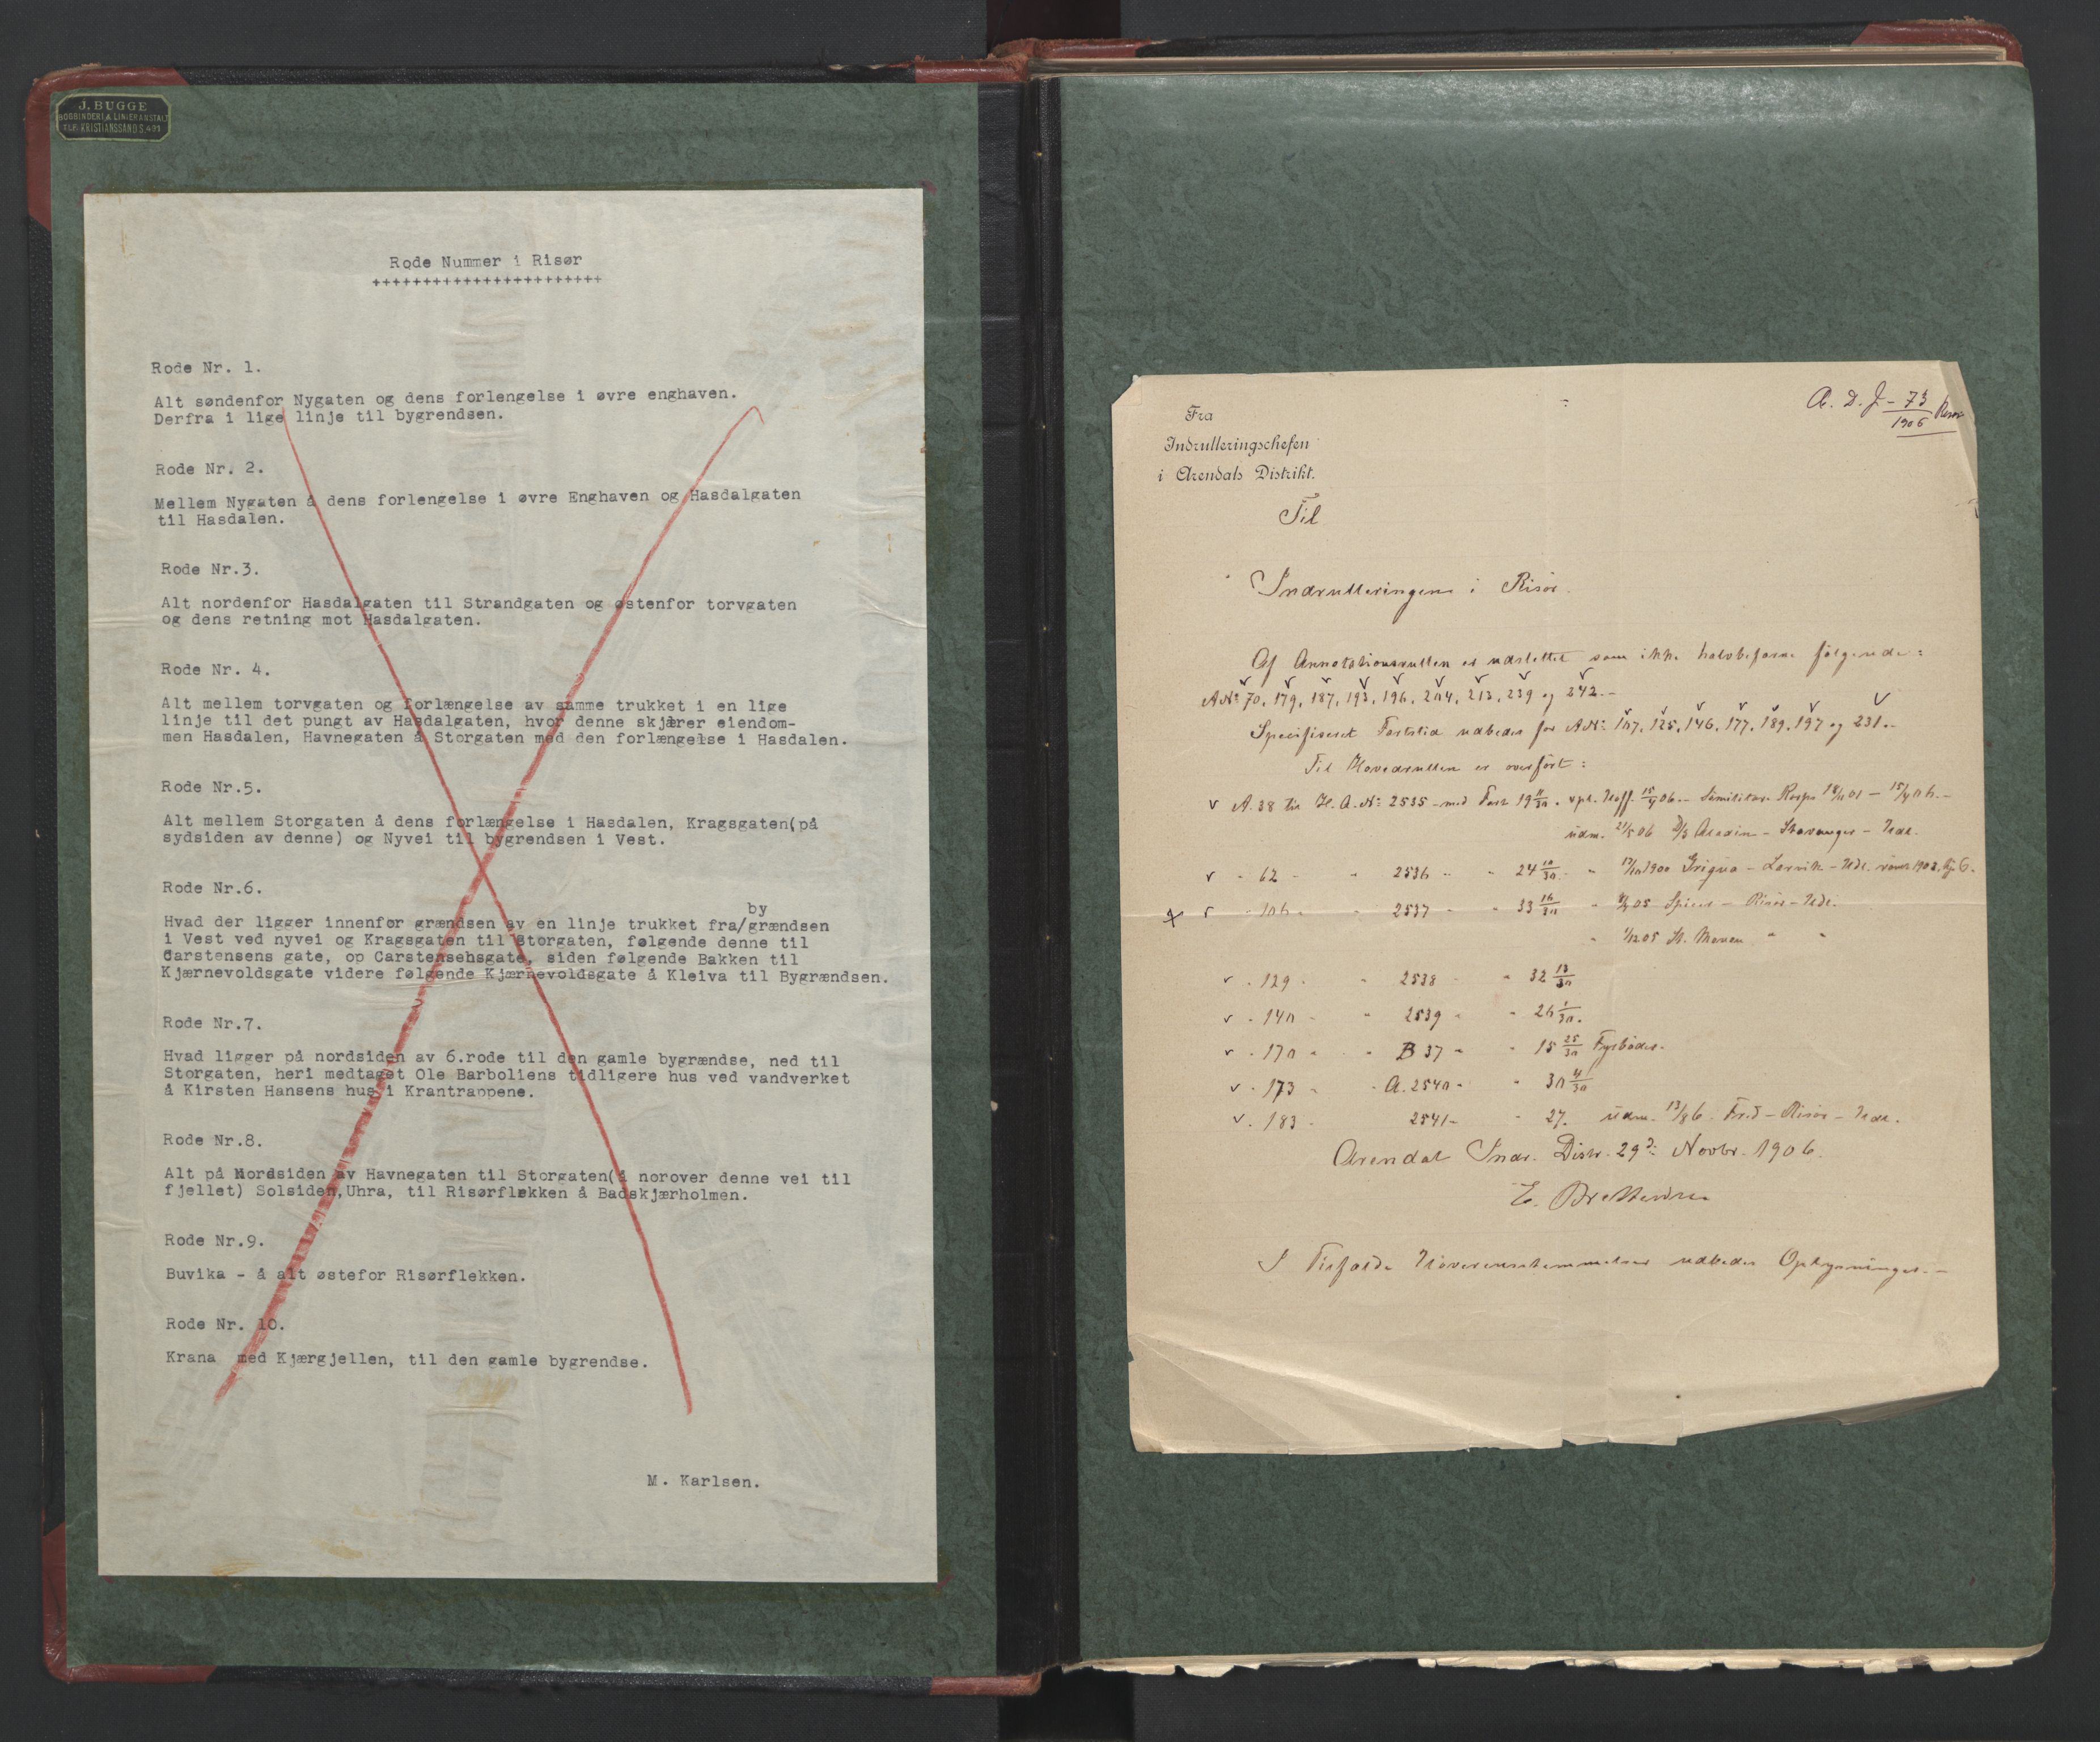 J. BUGGE
BOGBINDERI & LINIERANSTALT
TLF. KRISTIANSSAND S. 491
Rode Nummer i Risør
+++++++++++++++++++++++
Rode Nr. 1.
Alt søndenfor Nygaten og dens forlengelse i øvre enghaven.
Derfra i lige linje til bygrendsen.
Rode Nr. 2.
Mellem Nygaten å dens forlengelse i øvre Enghaven og Hasdalgaten
til Hasdalen.
Rode Nr.3.
Alt nordenfor Hasdalgaten til Strandgaten og østenfor torvgaten
og dens retning mot Hasdalgaten.
Rode Nr. 4.
Alt mellem torvgaten og forlængelse av samme trukket i en lige
linje til det pungt av Hasdalgaten, hvor denne skjærer eiendom-
men Hasdalen, Havnegaten å Storgaten med den forlængelse i Hasdalen.
Rode Nr.5.
Alt mellem Storgaten å dens forlængelse i Hasdalen, Kragsgaten(på
sydsiden av denne) og Nyvei til bygrendsen i Vest.
Rode Nr.6.
by
Hvad der ligger innenfor grændsen av en linje trukket fra/grændsen
i Vest ved nyvei og Kragsgaten til Storgaten, følgende denne til
Carstensens gate, op Carstensensgate, siden følgende Bakken til
Kjærnevoldsgate videre følgende Kjærnevoldsgate å Kleiva til Bygrændsen.
Rode Nr.7.
Hvad ligger på nordsiden av 6.rode til den gamle bygrændse, ned til
Storgaten, heri medtaget Ole Barboliens tidligere hus ved vandverket
å Kirsten Hansens hus i Krantrappene.
Rode Nr.8.
Alt på Nordsiden av Havnegaten til Storgaten(å norover denne vei til
fjellet) Solsiden,Uhra, til Risørflekken å Badskjærholmen.
Rode Nr.9.
Buvika - å alt østefor Risørflekken.
Rode Nr. 10.
Krana med Kjærgjellen, til den gamle bygrendse.
M. Karlsen.
A. D. J - 73
1906
Fra
Indrulleringschefen
i Arendals Distrikt.
Til
Indrulleringen i Risør.
Af Annotationsrullen er udslettet som ikke halvbefarne følgende:
A№ 70, 179, 187, 193, 196, 204, 213, 239 og 242.-
Specifiseret Fartstid udbedes for A№: 107, 125, 146, 177, 189, 197 og 231.-
Til Hovedrullen er overført:
v A. 38 til H. A. №: 2535 - med Fart 19 11/30.
udm. 21/5 06 Aladin - Stavanger - Udl.
v - 62 - " 2536 - " 24 10/30 - " 17/10 1900 Grigua - Larvik - Udl.
x v - 106 - " 2537 - " 33 16/30 05 Risør - Udl.
v - 129 - " 2538 - " 32 13/30
v - 140 - " 2539 - " 26 1/30.
v - 170 - " B 37 - " 15 25/30 Fyrbøder.
v - 173 - " A. 2540 - " 30 4/30
v - 183 - 2541 - " 27. udm. 13/8 6 - Fred - Risør - Udl.
Arendal Indr. Distr. 29d: Novbr. 1906.
I Tilfælde Uoverensstemmelser udbedes Oplysninger.-